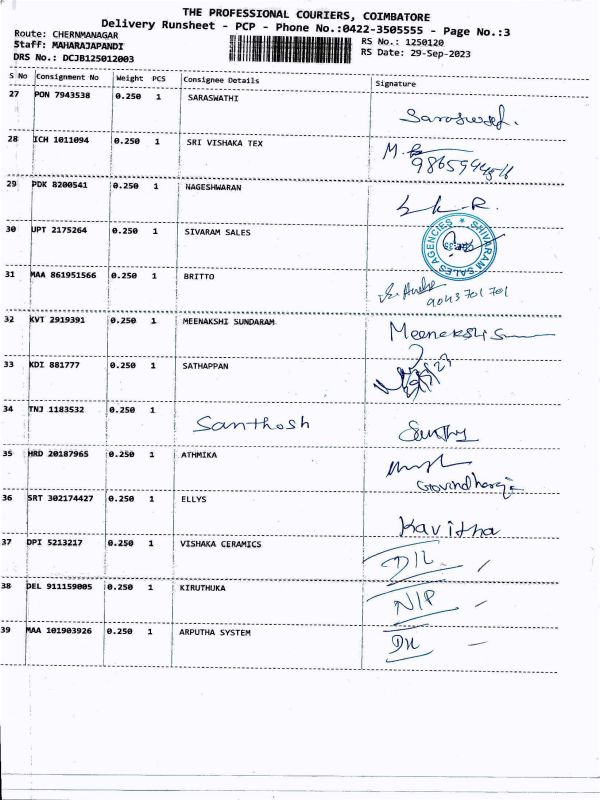 THE PROFESSIONAL COURIERS, COIMBATORE
Delivery Runsheet - PCP - Phone No.:0422-3505555 - Page No.:3
Route: CHERNMANAGAR
Staff: MAHARAJAPANDI
DRS No.: DCJB125012003
RS No.: 1250120
RS Date: 29-Sep-2023
S No Consignment No Weight PCS Consignee Details Signature
27 PON 7943538 0.250 1 SARASWATHI
28 ICH 1011094 0.250 1 SRI VISHAKA TEX M.
29 PDK 8200541 0.250 1 NAGESHWARAN S.K.R.
30 UPT 2175264 0.250 1 SIVARAM SALES
SHIVARAM SALES AGENCIES
31 MAA 861951566 0.250 1 BRITTO
9043701701
32 KVT 2919391 0.250 1 MEENAKSHI SUNDARAM Meenakshi S
33 KDI 881777 0.250 1 SATHAPPAN
34 TNJ 1183532 0.250 1 Santhosh
35 HRD 20187965 0.250 1 ATHMIKA
Govindharaja
36 SRT 302174427 0.250 1 ELLYS Kavitha
37 DPI 5213217 0.250 1 VISHAKA CERAMICS D/L
38 DEL 911159005 0.250 1 KIRUTHUKA N/P
39 MAA 101903926 0.250 1 ARPUTHA SYSTEM D/L